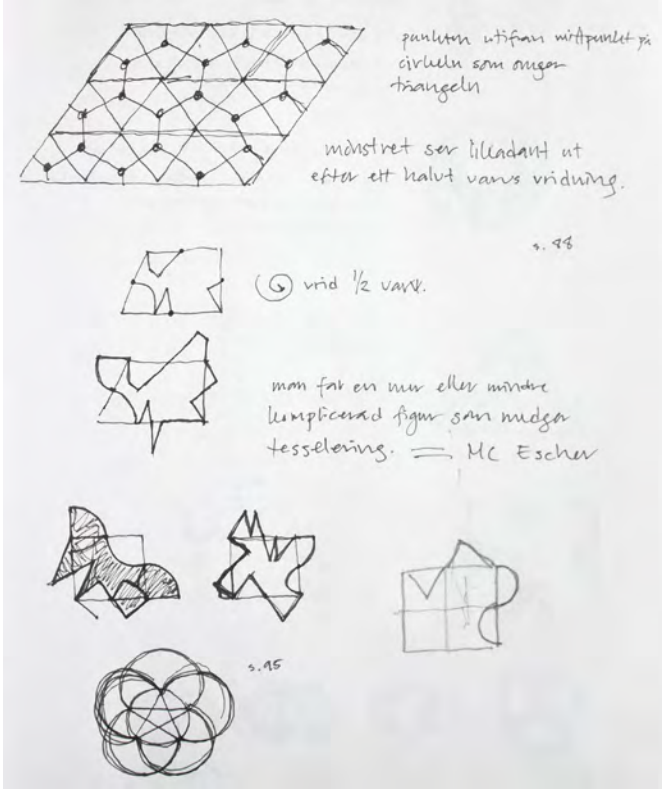 punkten utifrån mittpunkt på
cirkeln som omger
triangeln
mönstret ser likadant ut
efter ett halvt varvs vridning.
s. 88
vrid 1/2 varv.
man får en mer eller mindre
komplicerad figur som medger
tesselering. = MC Escher
s. 95